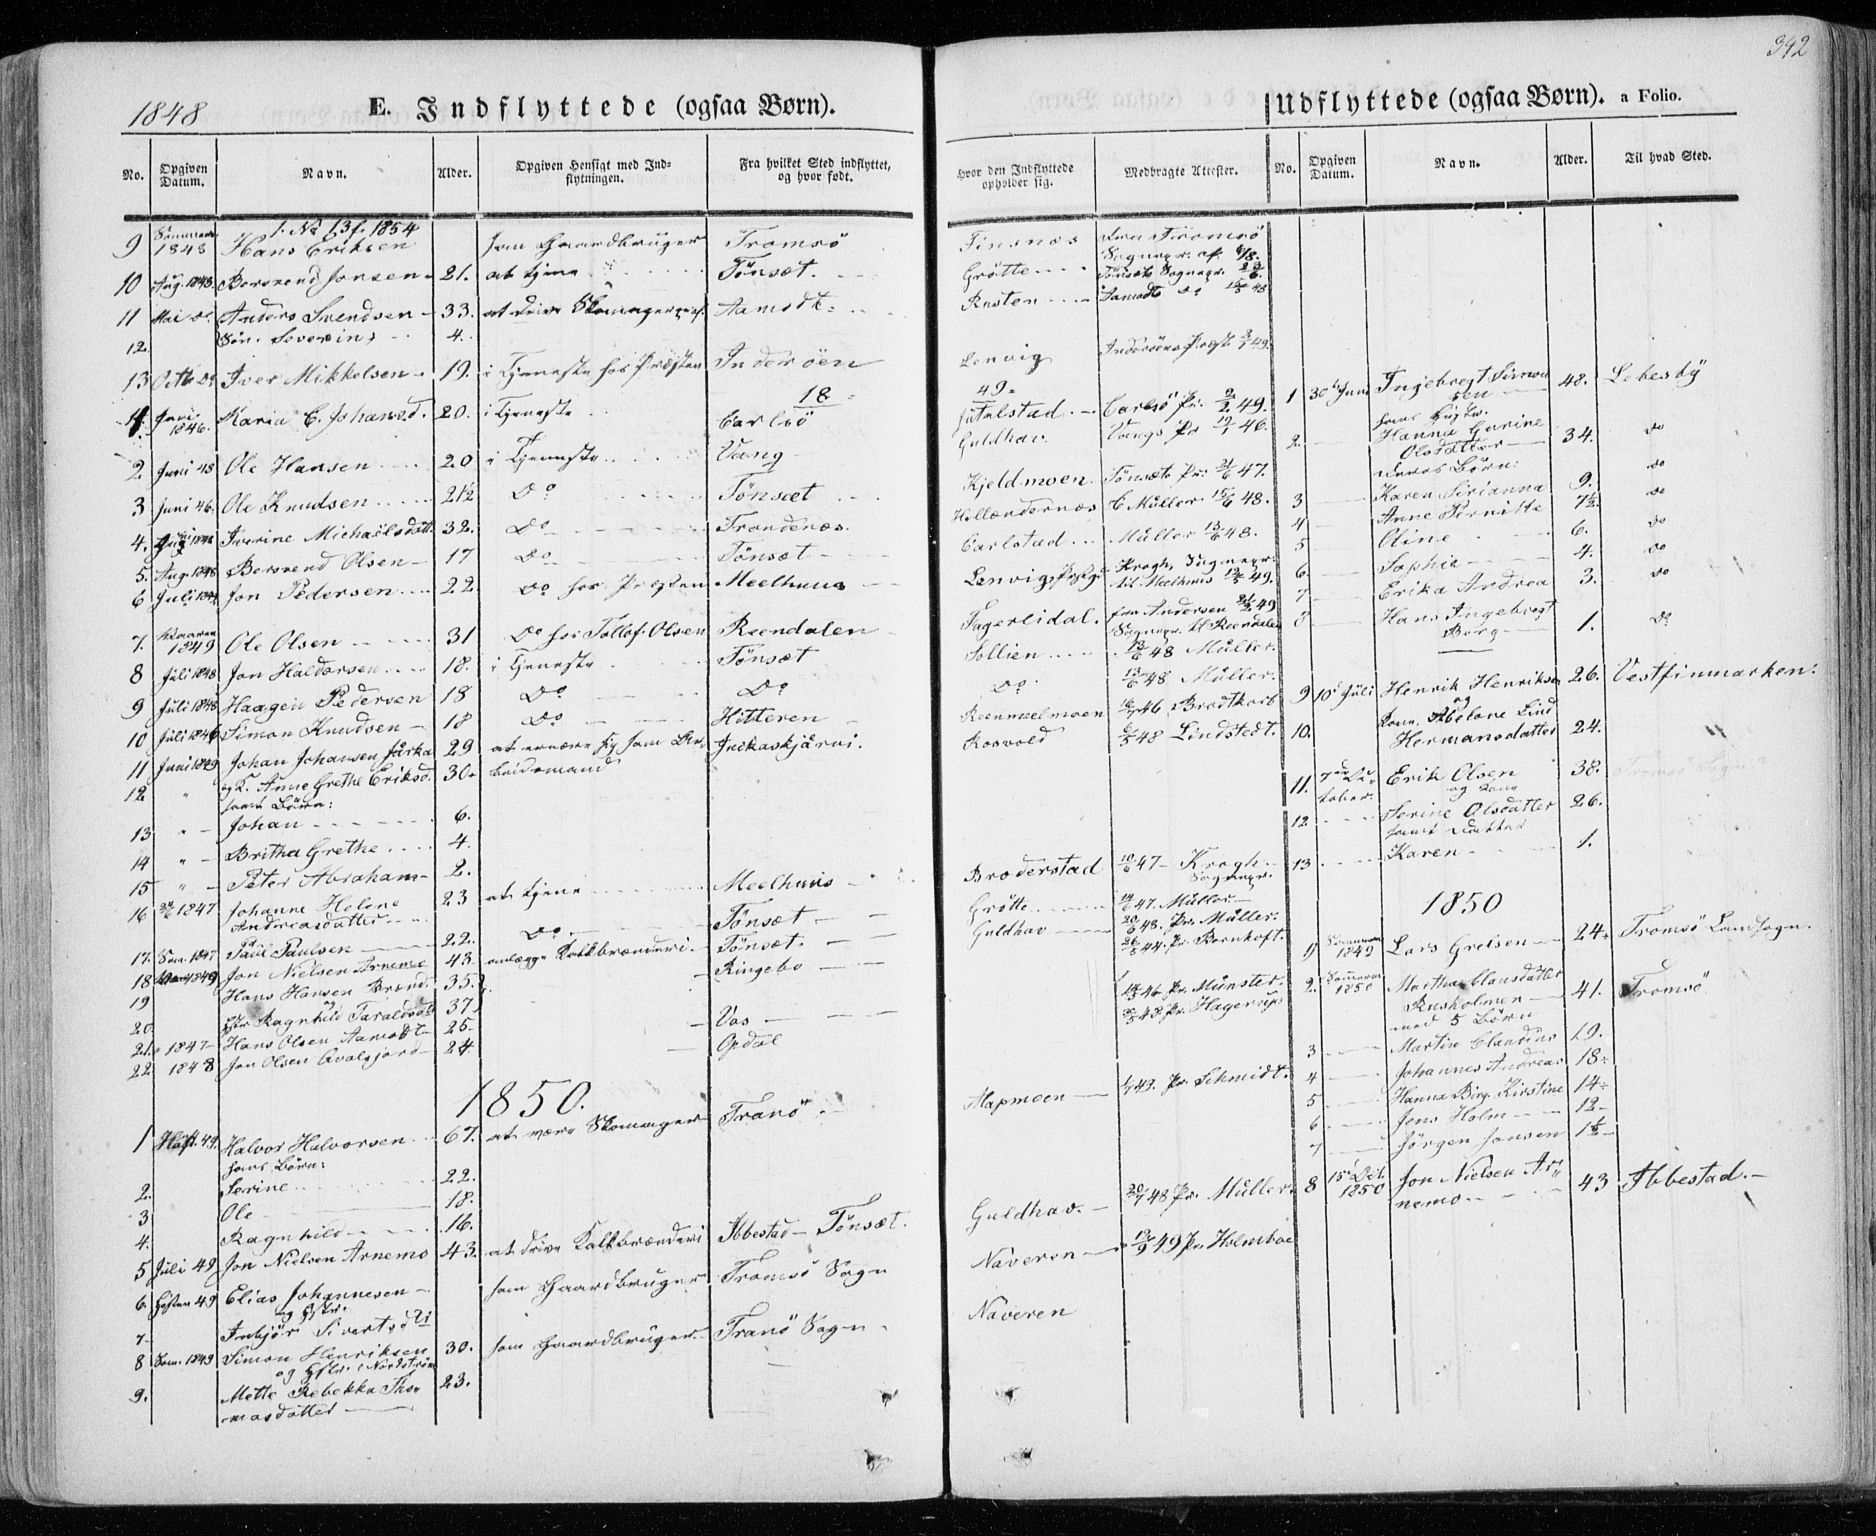 392
1848
E. Indflyttede (ogsaa Børn).
No.
Opgiven Datum.
Navn.
Alder.
Opgiven Hensigt med Indflytningen.
Fra hvilket Sted indflyttet, og hvor født.
1. No 13 f. 1854
9 1848 Hans Eriksen som Gaardbruger Tromsö
10 Aug. 1848. Bersvend Jonsen 21. at tjene Tönset.
11 Mai do Anders Svendsen 33. at drive Skomagerprof. Aamodt
12. Sön. Severin 4.
13 Octb. do Iver Mikkelsen 19. i Tjeneste hos Præsten Inderöen
18 49
1. 1846. Maria E. Johansd. 20. i Tjeneste Carlsö
2. Juni 48 Ole Hansen 20 i Tjeneste Vang
3 Juni 46. Ole Knudsen 21½ Do Tönsæt
4. Iverine Michaelsdatt. 32. Do Trondenæs.
5. Aug. 1848 Bersvend Olsen 17 Do Tönsæt
6 Juli Jon Pedersen 22 Do hos Præsten Meelhuus
7. Vaaren 1849 Ole Olsen 31 Do hos Tollof Olsen Reendalen
8 Juli 1848 Jon Haldorsen 18. i Tjeneste Tönsæt
9 Juli 1848 Haagen Pedersen 18 Do Do
10 Juli 1846 Simon Knudsen 18 Do Hitteren
11 Juni 1849 Johan Johansen Jårka 29 at ernære sig som Arbeidsmand Juckaskjärvi.
12 " og K. Anne Grethe Eriksd. 30.
samt Börn:
13 " Johan 6.
14 " Britha Grethe 4.
15 " Peter Abraham 2.
16 1847 Johanne Helene Andreasdatter 23 at tjene Meelhuus
17. Som. 1847 Paul Paulsen 22. Do Tönsæt
18 1849 Jon Nielsen Arnemo 43. anlægge Kalkbrænderi Tönsæt.
19 Hans Hansen Brænd. 35. Ringebo
20. og Hstr Ragnhild Taraldsdatt 37
21. 1847 Hans Olsen Aamodt 25 Vos
22 1848 Jon Olsen Qvalsfjord 24 Opdal
1850.
1 Höst. 49. Halvor Halvorsen 67. at være Skomager Tranö
hans Börn:
2. Serine 22.
3 Ole 18.
4. Ragnhild 16.
5 Juli 49 Jon Nielsen Arnemo 43. at drive Kalkbrænderi Ibbestad - Tönsæt.
6. Hösten 49 Elias Johannesen som Gaardbruger Tromsö Sogn
og Hstr.
7 Inbjör Sivertsdtr
8 Som. 1849 Simon Henriksen 30. som Gaardbruger Tranö Sogn
og Hstr. Nordström
9. Mette Rebekka Thomasdatter 23.
Hvor den Indflyttede opholder sig.
Medbragte Attester.
Finsnes fra Tromsö Sognepr. af
Grötte Tönsets Sognepr.
Rusten Aamodts do
Lenvig Inderöens Præst
Jutulstad Carlsö Pr. 2/2 49.
Guldhav. Vangs Pr 46.
Kjeldmoen Tönsæts Pr. 47.
Hollændernæs C Müller 15/6 48.
Carlstad Müller 13/6 48.
Lenvig Præstg. Krogh, Sognepr. til Meelhuus 49.
Fagerlidal. fra Andersen 49 Sognepr. til Reendalen
Sollien 13/6 48 Müller.
Do 13/6 48 Müller.
Reenmeelmoen 46. Brodtkorb
Rosvold 48 Lindstedt.
Broderstad 10/6 47 Krogh Sognepr.
Grötte 47. Müller
Guldhav 20/6 48. Pr. Müller.
44. Pr. Bernhoft.
46. Pr. Münster.
43. Pr. Hagerup.
Mapmoen 49. Pr. Schmidt.
Guldhav. 48 Pr. Müller.
Naveren 49 Pr. Holmboe
Naveren
Udflyttede (ogsaa Børn). a Folio.
No.
Opgiven Datum.
Navn.
Alder.
Til hvad Sted.
1 30t Juni Ingebregt Simonsen 48. Lebesby
hans Hustr.
2. Hanna Gurine Olsdatter 34. do
deres Börn:
3 Karen Sirianna 9. do
4 Anne Pernitte 7½ do
5 Oline 6. do
6. Sophie 4. do
7 Erika Andrea 3. do
8 Hans Ingebregt Berg 1. do
9 10d Juli Henrik Henriksen 26. Vestfinmarken.
og
10. Kone. Abelone Lind Hermansdatter 24.
11. 7de October. Erik Olsen 38. Tromsö Sogn
og Kone
12 Serine Olsdatter 26.
samt Datter
13 Karen 1.
1850
1 Sommeren 1849 Lars Gretsen 24. Tromsö Landsogn.
2. Sommeren 1850 Martha Clausdatter Rusholmen 41. Tromsö
med 5 Börn
3 Martin Claudius 19.
4 Johannes Andreas 18
5 Hanna Birg. Kirstine 14
6. Jens Holm 12
7 Jörgen Jonsen 1½
8 15d Oct. 1850 Jon Nielsen Arnemo 43 Ibbestad.